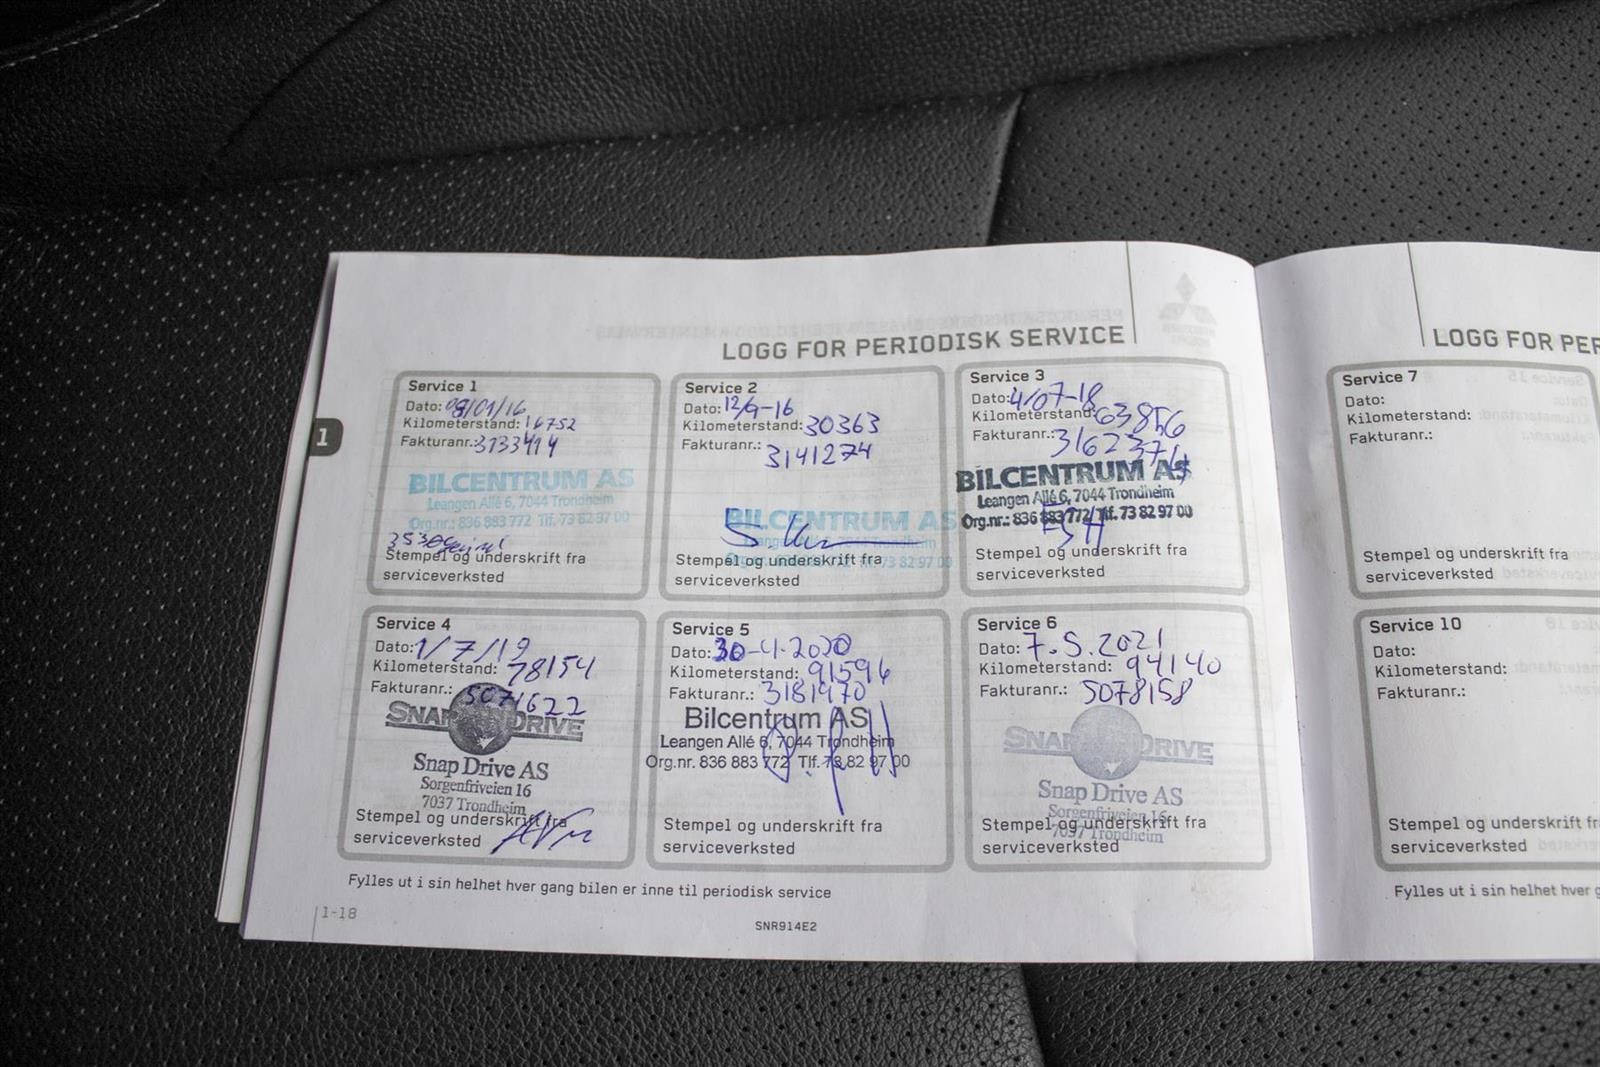 LOGG FOR PERIODISK SERVICE
Service 1
Dato: 08/01/16
Kilometerstand: 16752
Fakturanr.: 3133414
BILCENTRUM AS
Leangen Allé 6, 7044 Trondheim
Org.nr.: 836 883 772 Tlf. 73 82 97 00
Stempel og underskrift fra
serviceverksted
Service 2
Dato: 12/9-16
Kilometerstand: 30363
Fakturanr.:
3141274
BILCENTRUM AS
Stempel og underskrift fra
serviceverksted
Service 3
Dato: 4/07-18
Kilometerstand: 63856
Fakturanr.: 3162374
BILCENTRUM AS
Leangen Allé 6, 7044 Trondheim
Org.nr.: 836 883 772 Tlf. 73 82 97 00
Stempel og underskrift fra
serviceverksted
Service 4
Dato: 1/7/19
Kilometerstand: 78154
Fakturanr.: 5071622
SNAP DRIVE
Snap Drive AS
Sorgenfriveien 16
7037 Trondheim
Stempel og underskrift fra
serviceverksted
Service 5
Dato: 30-4-2020
Kilometerstand: 91596
Fakturanr.: 3181470
Bilcentrum AS
Leangen Allé 6, 7044 Trondheim
Org.nr. 836 883 772 Tlf. 73 82 97 00
Stempel og underskrift fra
serviceverksted
Service 6
Dato: 7.5.2021
Kilometerstand: 94140
Fakturanr.: 5078158
SNAP DRIVE
Snap Drive AS
Sorgenfriveien 16
7037 Trondheim
Stempel og underskrift fra
serviceverksted
Fylles ut i sin helhet hver gang bilen er inne til periodisk service
1-18
SNR914E2
1
LOGG FOR PER
Service 7
Dato:
Kilometerstand:
Fakturanr.:
Stempel og underskrift fra
serviceverksted
Service 10
Dato:
Kilometerstand:
Fakturanr.:
Stempel og underskrift fr
serviceverksted
Fylles ut i sin helhet hver g